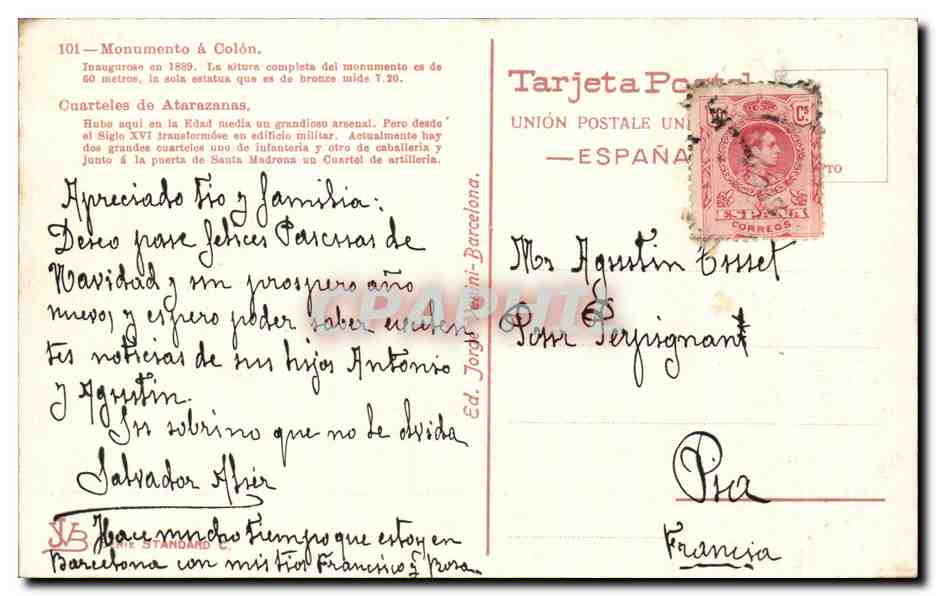 101 — Monumento á Colón.
Inauguróse en 1889. La altura completa del monumento es de
60 metros, la sola estatua que es de bronce mide 7.20.
Cuarteles de Atarazanas.
Hubo aquí en la Edad media un grandioso arsenal. Pero desde
el Siglo XVI transformóse en edificio militar. Actualmente hay
dos grandes cuarteles uno de infantería y otro de caballería y
junto á la puerta de Santa Madrona un Cuartel de artillería.
Apreciado tio y familia:
Deseo pase felices Pascuas de
Navidad y un prospero año
nuevo, y espero poder saber excelen
tes noticias de sus hijos Antonio
y Agustin.
Su sobrino que no le olvida
Salvador
Hace mucho tiempo que estoy en
Barcelona con mis tios Francisco y Rosa
JVB
STANDARD C.
Ed. Jorge Venini-Barcelona.
Tarjeta Postal
UNIÓN POSTALE UNI
— ESPAÑA
Cs
ESPAÑA
CORREOS
Mr Agustin
Pour Perpignant
Pia
Francia
CPAPHIL